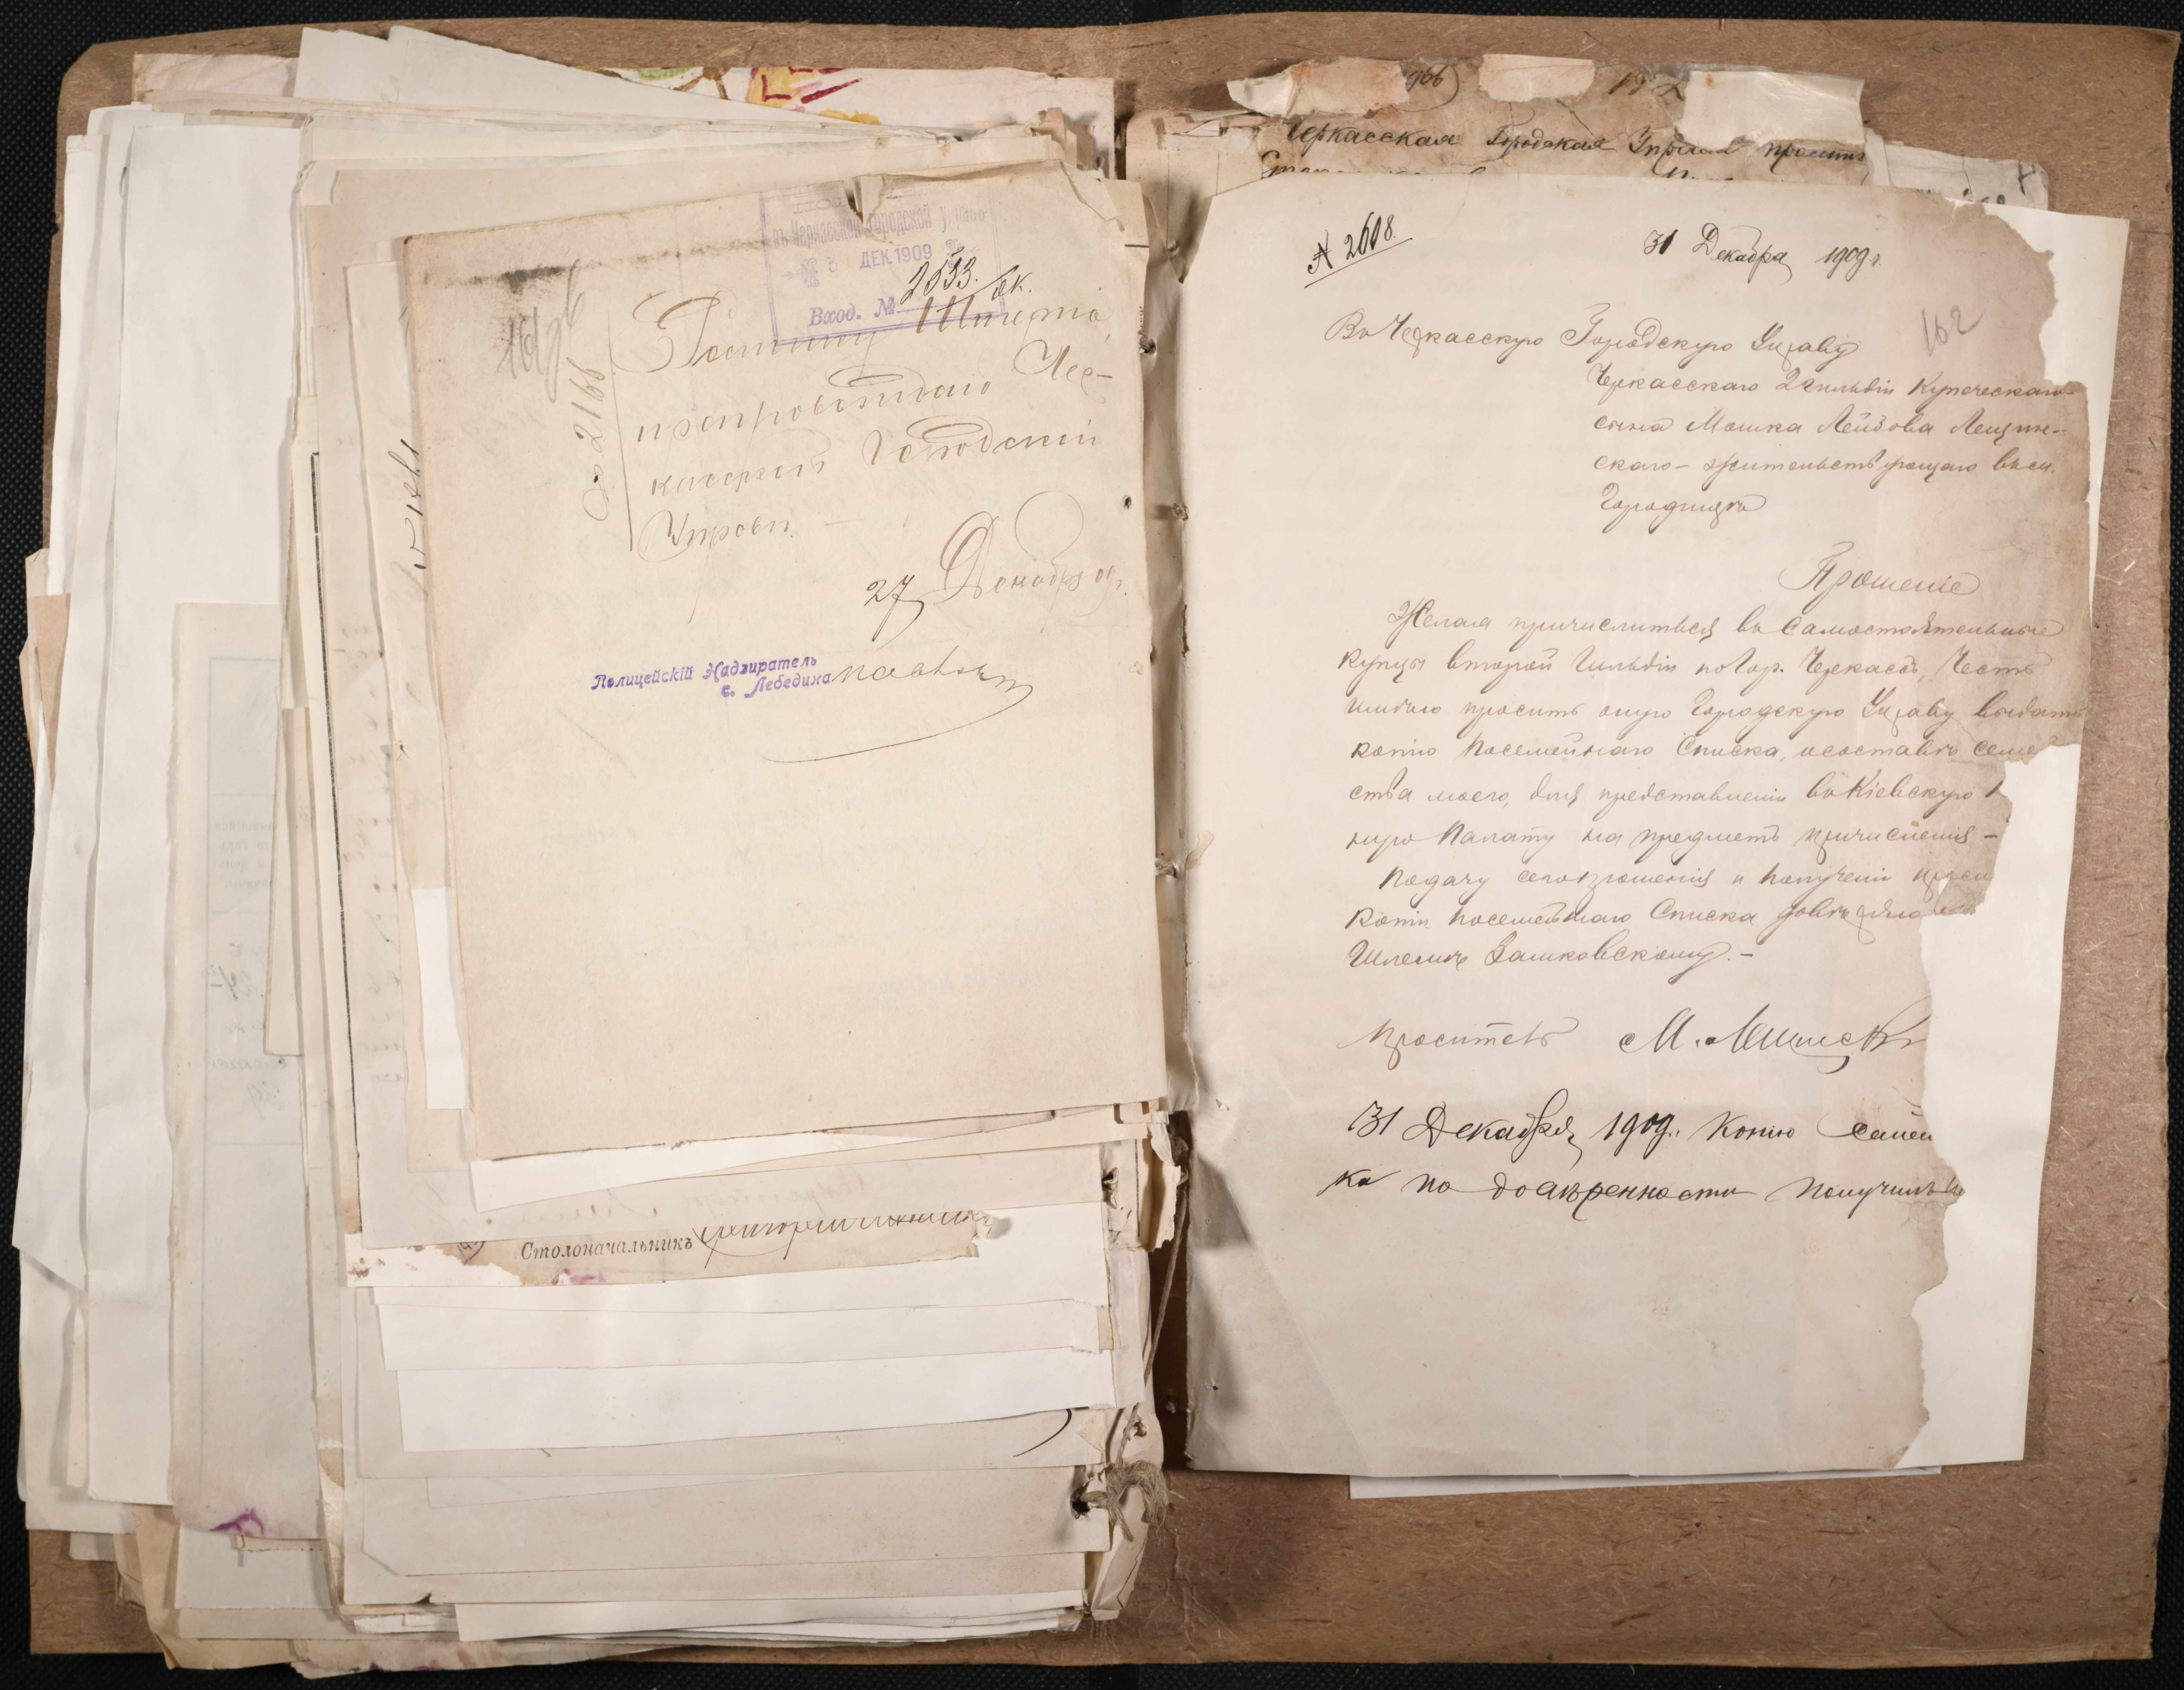 въ Черкасской Городской Управѣ
3 ДЕК. 1909
2533.
Вход. №
№ 2166
Росписку
препровождаю Чер-
касской Городской
Управѣ.
27 Декабря 09 г.
Полицейскій Надзиратель
с. Лебедина
Столоначальникъ
966
Черкасская Городская Управа проситъ
№ 2608
31 Декабря 1909 г.
162
Въ Черкасскую Городскую Управу
Черкасскаго 2 гильдіи Купеческаго
сына Мошка Лейбова Лещин-
скаго - жительствующаго въ м.
Городищѣ
Прошеніе
Желая причислиться въ самостоятельные
купцы второй Гильдіи по Гор. Черкасы, Честь
имѣю просить оную Городскую Управу выдать
копію посемейнаго Списка, о составѣ семей
ства моего, для представленія въ Кіевскую
ную Палату на предметъ причисленія -
Подачу сего прошенія и полученіи
копіи посемейнаго Списка довѣряю
Шлемѣ Зашковскому. -
Проситель М. Лещинск
31 Декабря 1909 г. Копію
ка по довѣренности получилъ